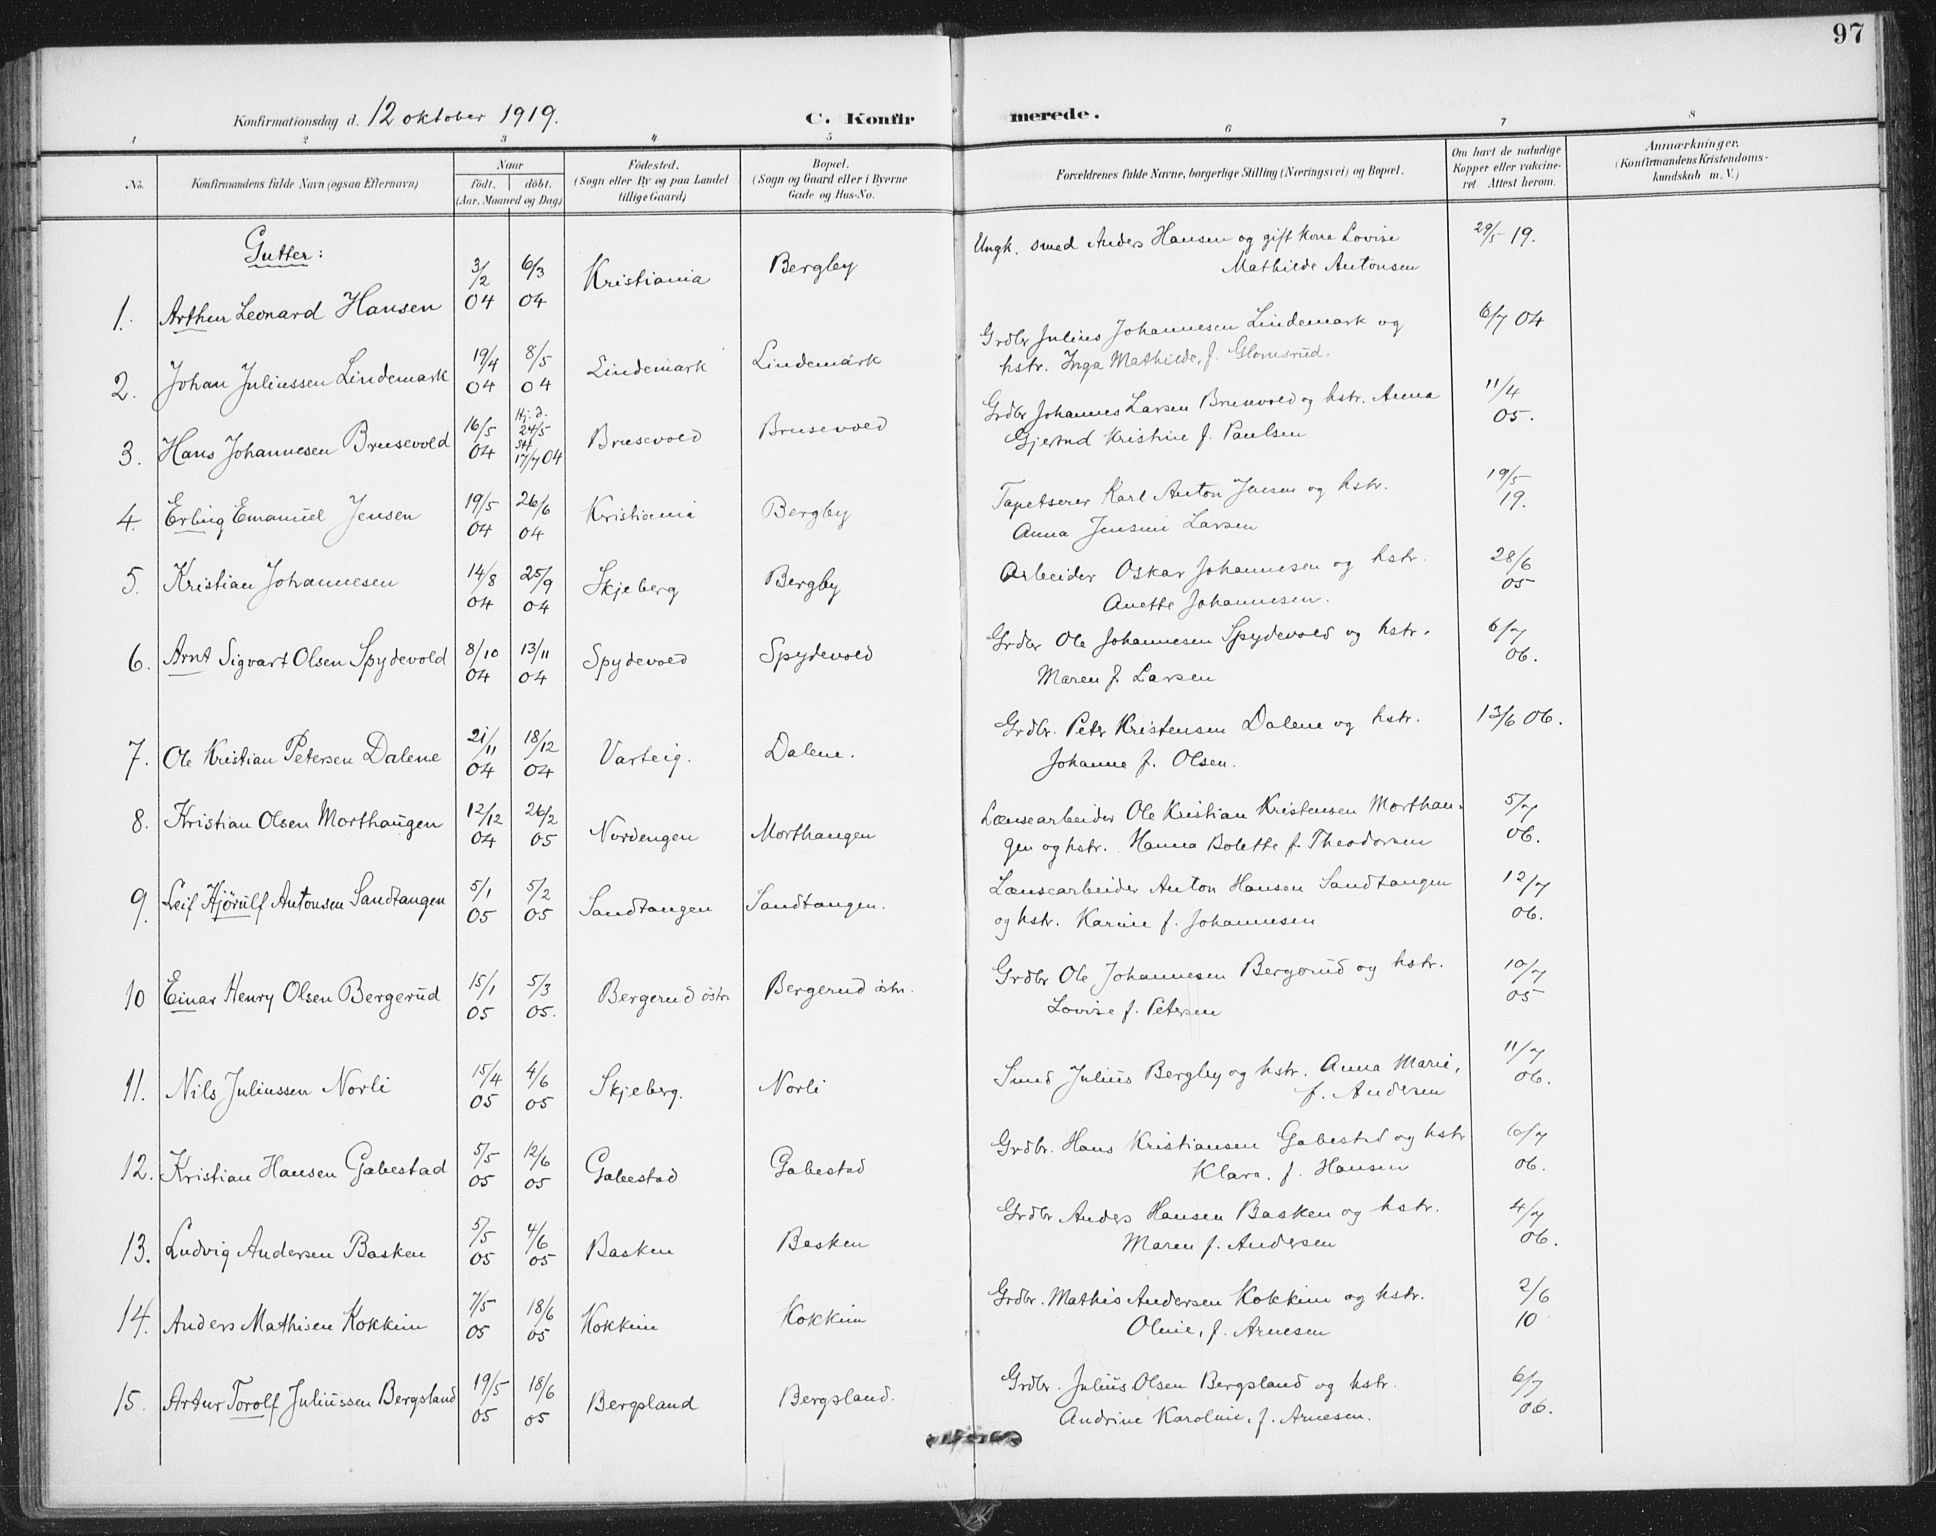 97
Konfirmationsdag d. 12 oktober 1919. C. Konfirmerede.
1 2 3 4 5 6 7 8
No. Konfirmandens fulde Navn (ogsaa Efternavn) Naar født. døbt. (Aar, Maaned og Dag) Fødested. (Sogn eller By og paa Landet tillige Gaard) Bopæl. (Sogn og Gaard eller i Byerne Gade og Hus-No. Forældrenes fulde Navne, borgerlige Stilling (Næringsvei) og Bopæl. Om havt de naturlige Kopper eller vakcineret. Attest herom. Anmærkninger. (Konfirmandens Kristendomskundskab m. V.)
Gutter:
1. Arthur Leonard Hansen 3/2 04 6/3 04 Kristiania Bergby Ungk. smed Anders Hansen og gift kone Lovise 29/5 19.
Mathilde Antonsen
2. Johan Juliussen Lindemark 19/4 04 8/5 04 Lindemark Lindemark Grdbr Julius Johannesen Lindemark og 6/7 04
hstr. Inga Mathilde, f. Glomsrud.
3. Hans Johannesen Brusevold 16/5 04 Hj. d. 24/5 stf 17/7 04 Brusevold Brusevold Grdbr Johannes Larsen Brusevold og hstr. Anna 11/4 05.
Gjertrud Kristine f. Paulsen
4. Erling Emanuel Jensen 19/5 04 26/6 04 Kristiania Bergby Tapetserer Karl Anton Jensen og hstr. 19/5 19.
Anna Jensine Larsen
5. Kristian Johannesen 14/8 04 25/9 04 Skjeberg Bergby Arbeider Oskar Johannesen og hstr. 28/6 05
Anette Johannesen.
6. Arnt Sigvart Olsen Spydevold 8/10 04 13/11 04 Spydevold Spydevold Grdbr Ole Johannesen Spydevold og hstr. 6/7 06.
Maren f. Larsen
7. Ole Kristian Petersen Dalene 21/11 04 18/12 04 Varteig. Dalene. Grdbr. Peter Kristensen Dalene og hstr. 13/6 06.
Johanne f. Olsen.
8. Kristian Olsen Morthaugen 12/12 04 26/2 05 Nordengen Morthaugen Lænsearbeider Ole Kristian Kristensen Morthau- 5/7 06.
gen og hstr. Hanna Bolette f. Theodorsen
9. Leif Hjørulf Antonsen Sandtangen 5/1 05 5/2 05 Sandtangen Sandtangen. Lænsearbeider Anton Hansen Sandtangen 12/7 06.
og hstr. Karine f. Johannesen
10 Einar Henry Olsen Bergerud 15/1 05 5/3 05. Bergerud østr. Bergerud østr. Grdbr Ole Johannesen Bergerud og hstr. 10/7 05
Lovise f. Petersen
11. Nils Juliussen Norli 15/4 05 4/6 05 Skjeberg. Norli Smed Julius Bergby og hstr. Anna Marie, 11/7 06.
f. Andersen
12. Kristian Hansen Gabestad 5/5 05 12/6 05 Gabestad Gabestad Grdbr. Hans Kristiansen Gabestad og hstr 6/7 06.
Klara. f. Hansen
13. Ludvig Andersen Basken 5/5 05 4/6 05 Basken Basken Grdbr Anders Hansen Basken og hstr. 4/7 06.
Maren f. Andersen
14. Anders Mathisen Kokkim 7/5 05 18/6 05 Kokkim Kokkim Grdbr. Mathis Andersen Kokkim og hstr. 2/6 10
Oline, f. Arnesen
15. Artur Torolf Juliussen Bergsland 19/5 05 18/6 05 Bergsland Bergsland. Grdbr. Julius Olsen Bergsland og hstr. 6/7 06.
Andrine Karoline, f. Arnesen.